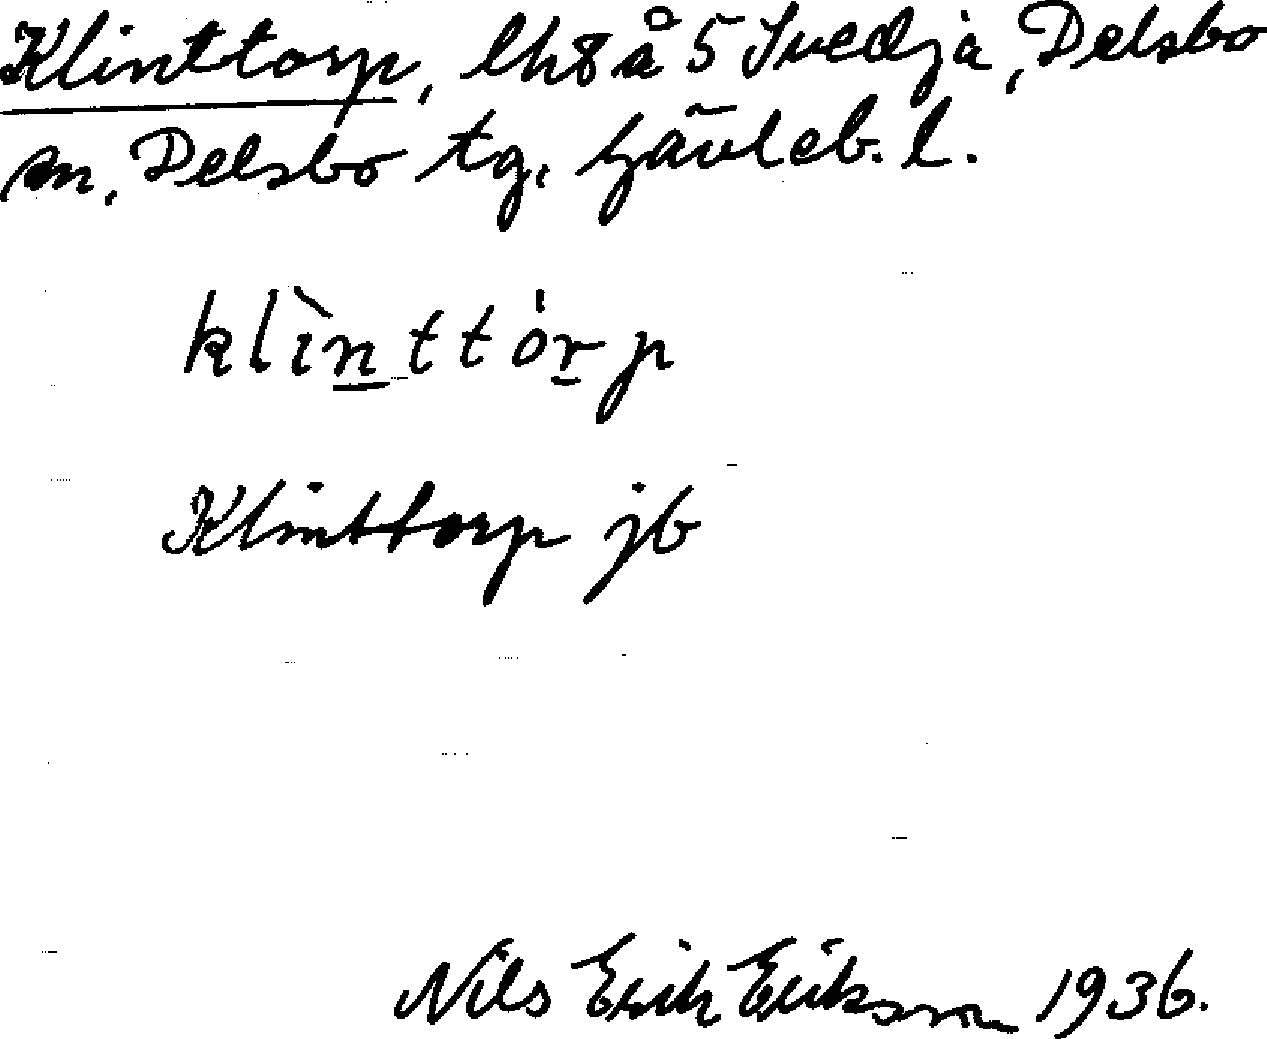 Klinttorp, lhs å 5 Svedja, Delsbo
sn, Delsbo tg, Gävleb. l.
klìnttórp
Klinttorp jb
Nils Erik Eriksson 1936.